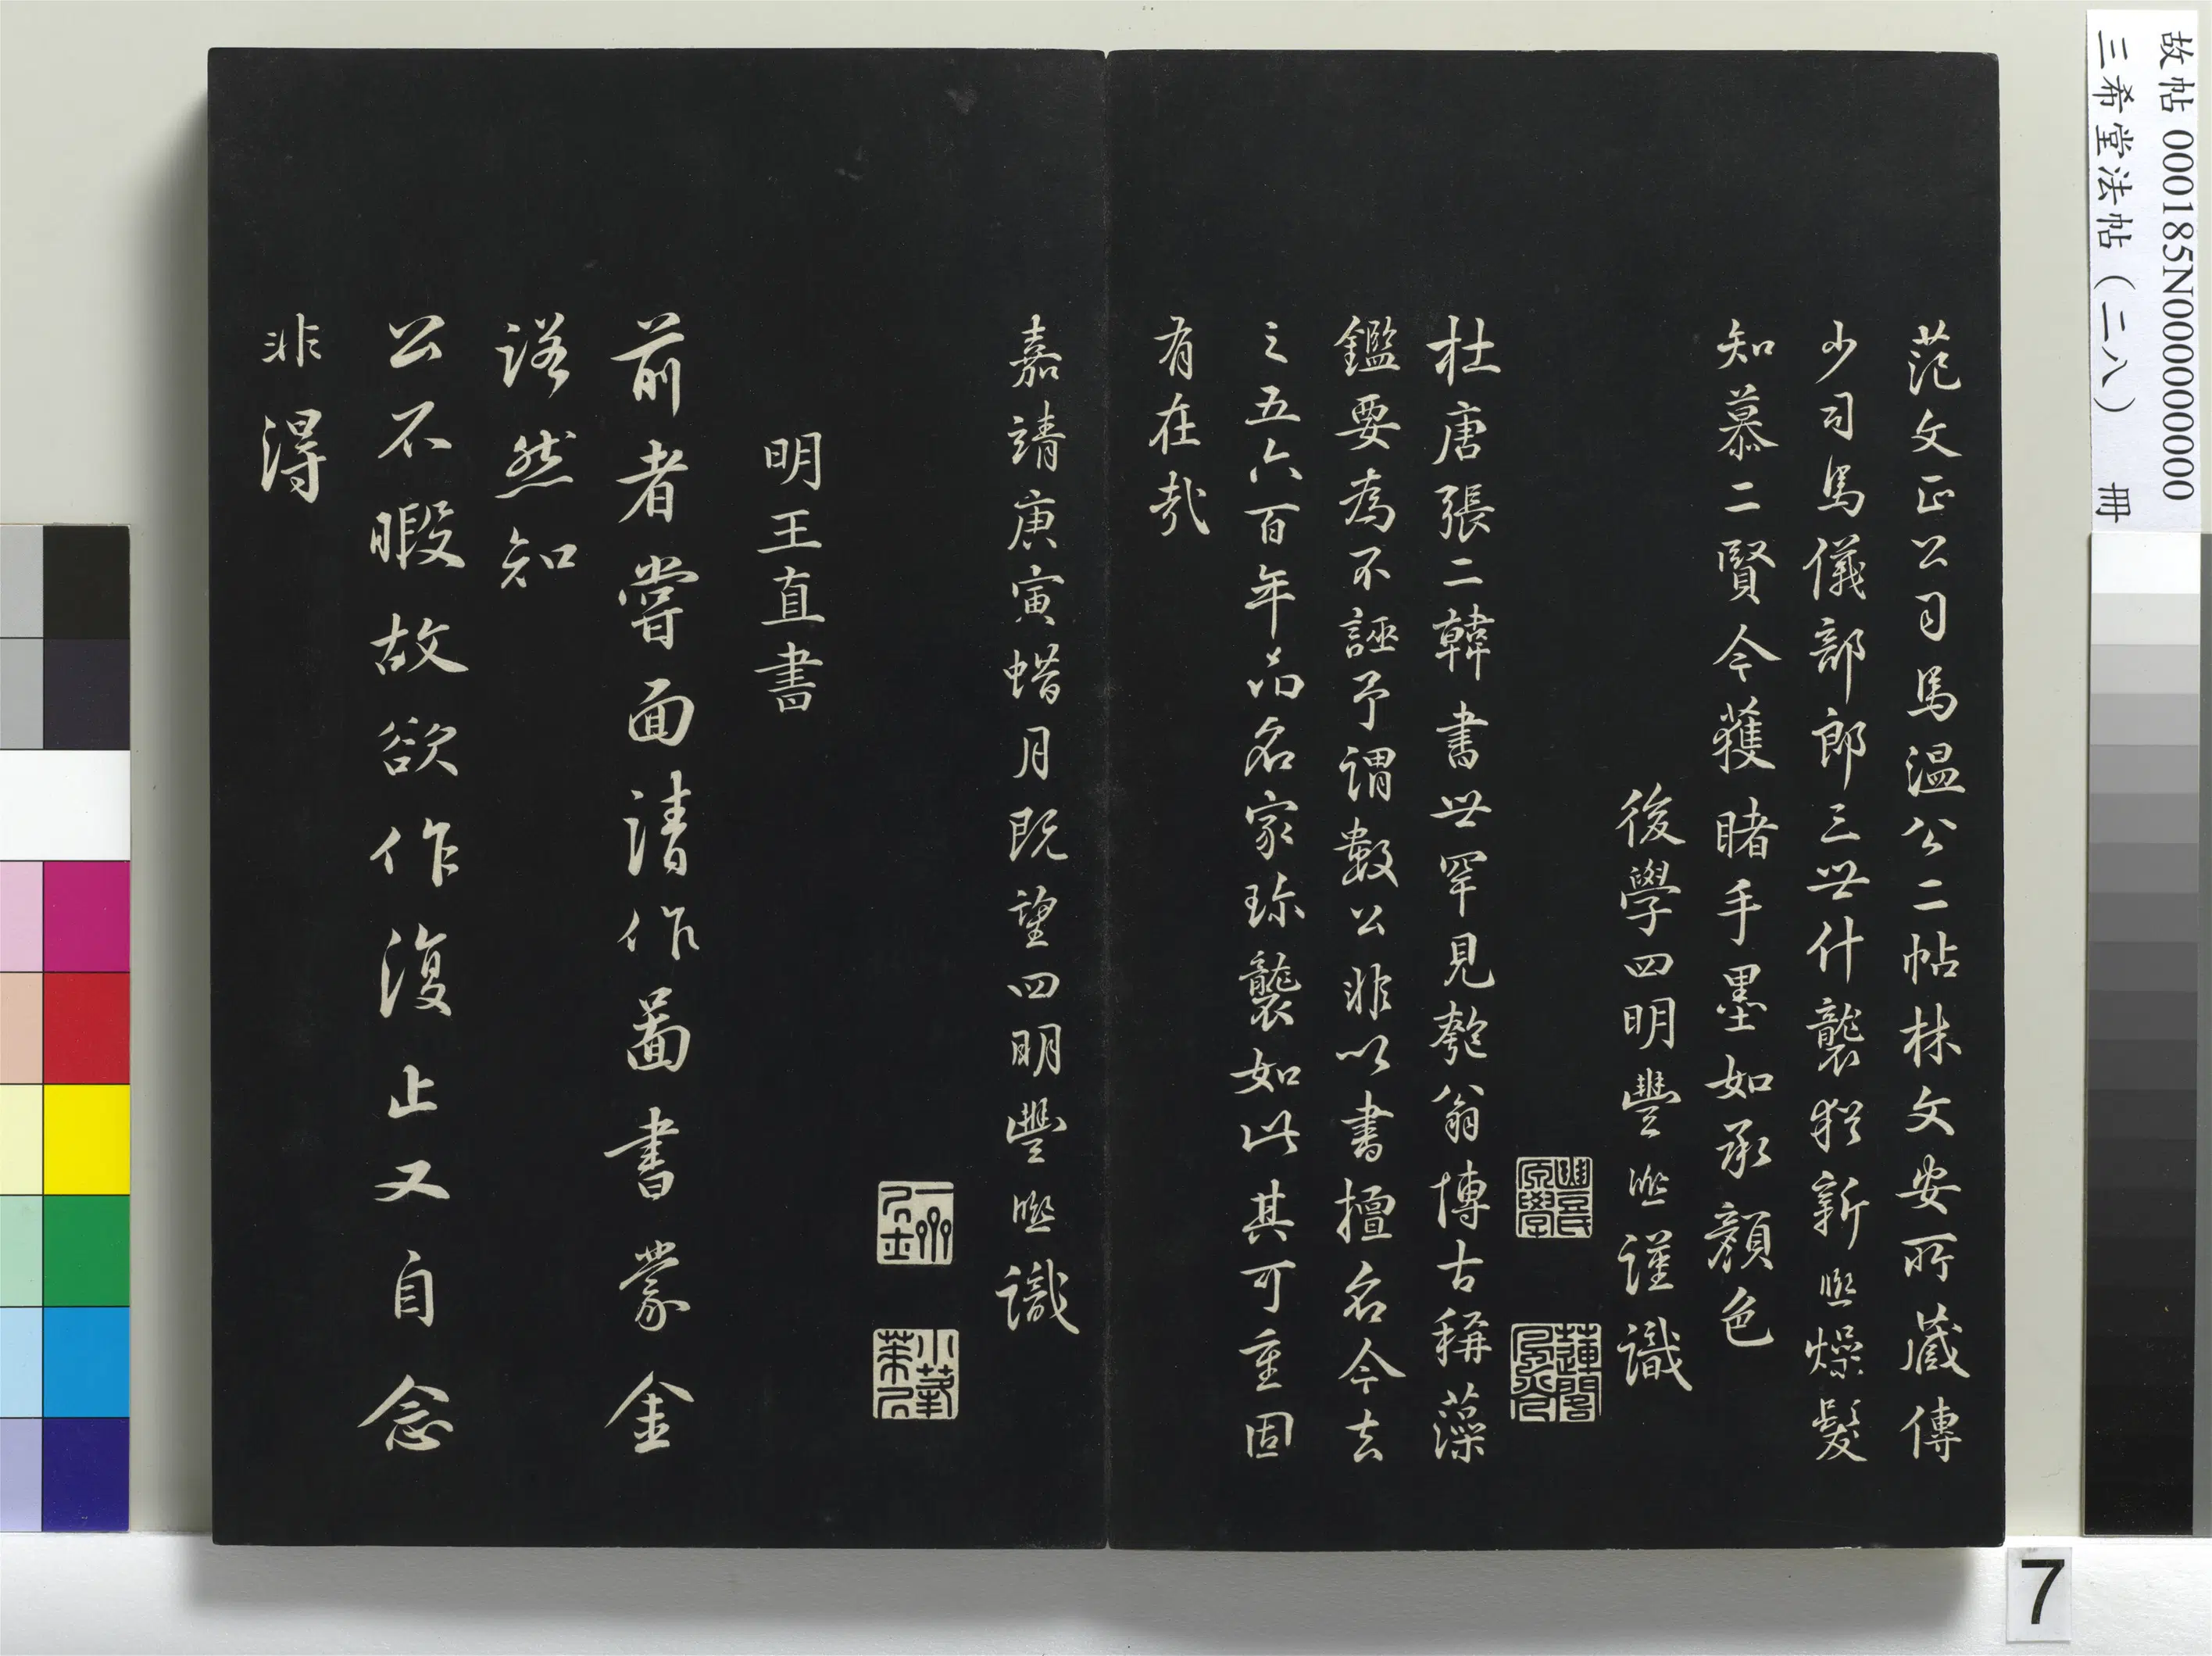 范文正公司馬溫公二帖林文安所藏傳
少司馬儀部郎三世什襲猶新熙燥髮
知慕二賢今獲睹手墨如承顏色
後學四明豐熙謹識
杜唐張二韓書世罕見匏翁博古稱藻
鑑要為不誣予謂數公非以書擅名今去
之五六百年品名家珍襲如此其可重固
有在哉
嘉靖庚寅蜡月既望四明豐熙識
明王直書
前者嘗面請作圖書蒙金
諾然知
公不暇故欲作復止又自念
非得
故帖 000185N000000000
三希堂法帖(二八) 冊
7